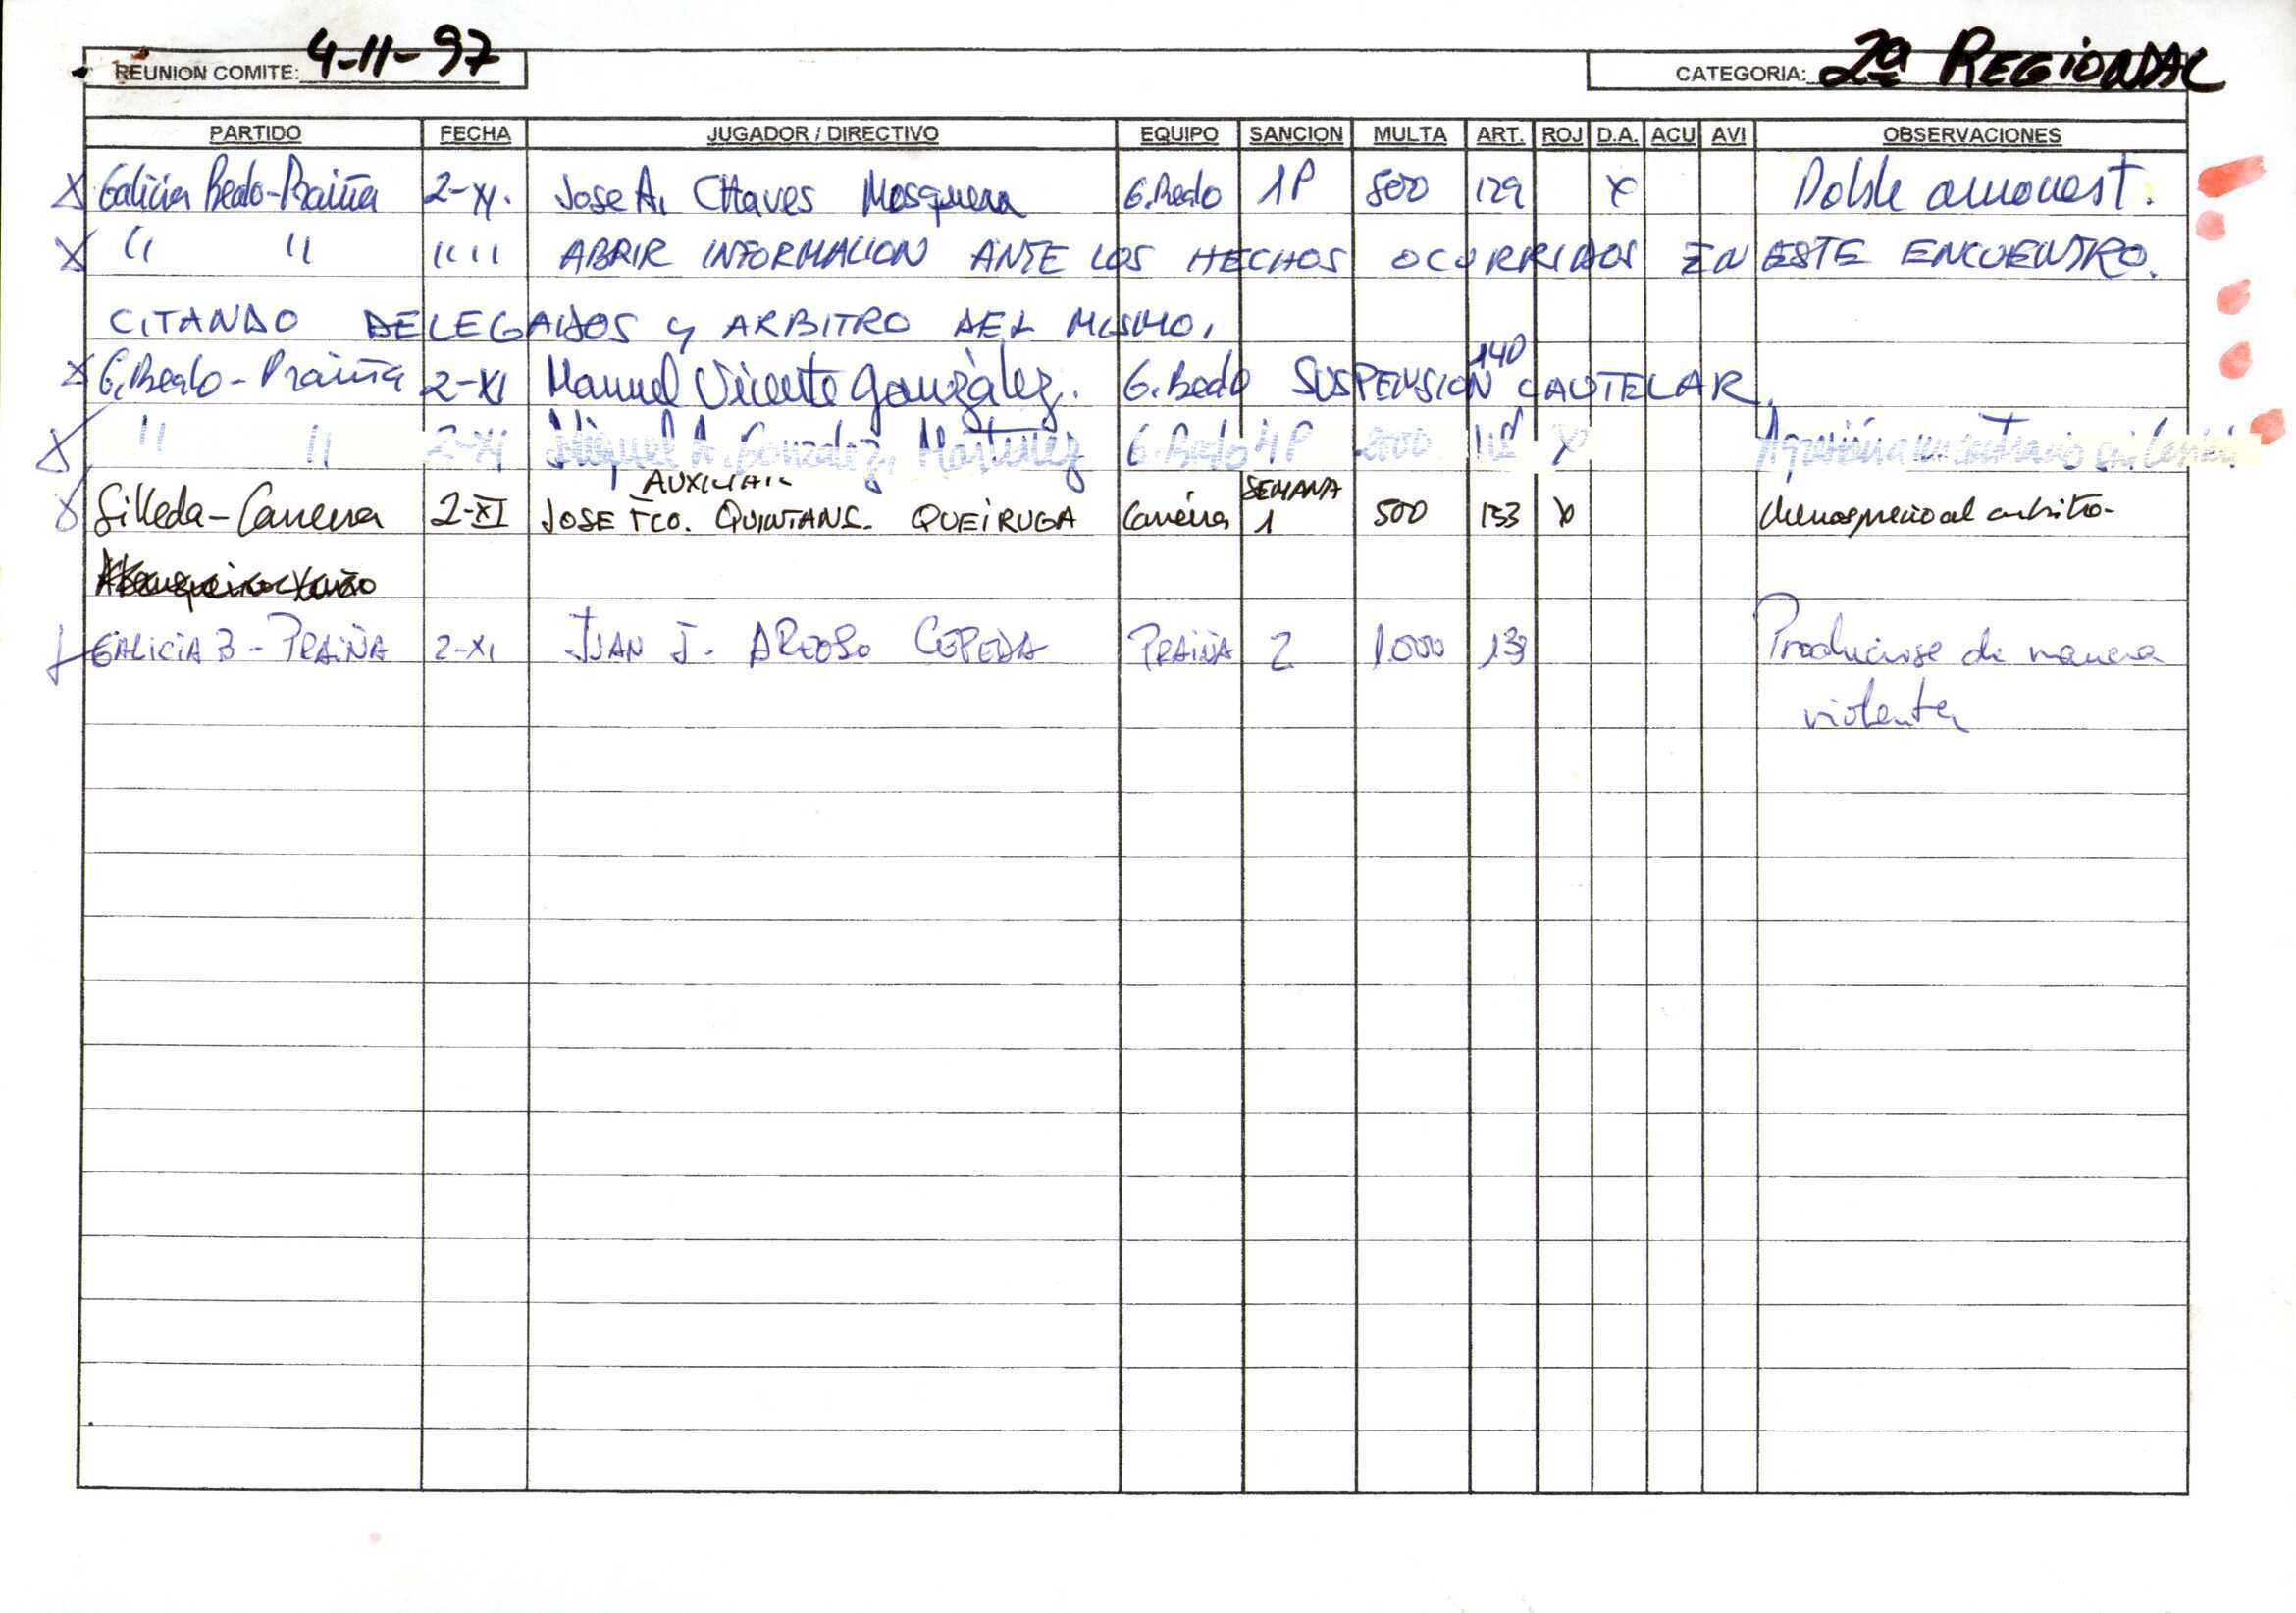 REUNION COMITE: 4-11-97 CATEGORIA: 2ª REGIONAL
PARTIDO FECHA JUGADOR / DIRECTIVO EQUIPO SANCION MULTA ART. ROJ D.A. ACU AVI OBSERVACIONES
X Galicia Bealo-Praiña 2-XI. Jose A. CHaves Mosquera G.Bealo 1P 500 129 X Doble amonest.
X " " " " ABRIR INFORMACION ANTE LOS HECHOS OCURRIDOS EN ESTE ENCUENTRO.
CITANDO DELEGADOS y ARBITRO DEL MISMO.
X G.Bealo-Praiña 2-XI Manuel Vicente González. G.Bealo SUSPENSION 140 CAUTELAR.
X " " 2-XI Miguel A. Gonzalez Martinez G.Bealo 4P 2000 X Agresión a un contrario sin lesión
AUXILIAR SEMANA
X Silleda-Carreira 2-XI JOSE FCO. QUINTANS. QUEIRUGA Carreira 1 500 133 X Menosprecio al arbitro-
GALICIA B - PRAIÑA 2-XI JUAN J. AREOSO CEPEDA PRAIÑA 2 1.000 Producirse de manera
violenta